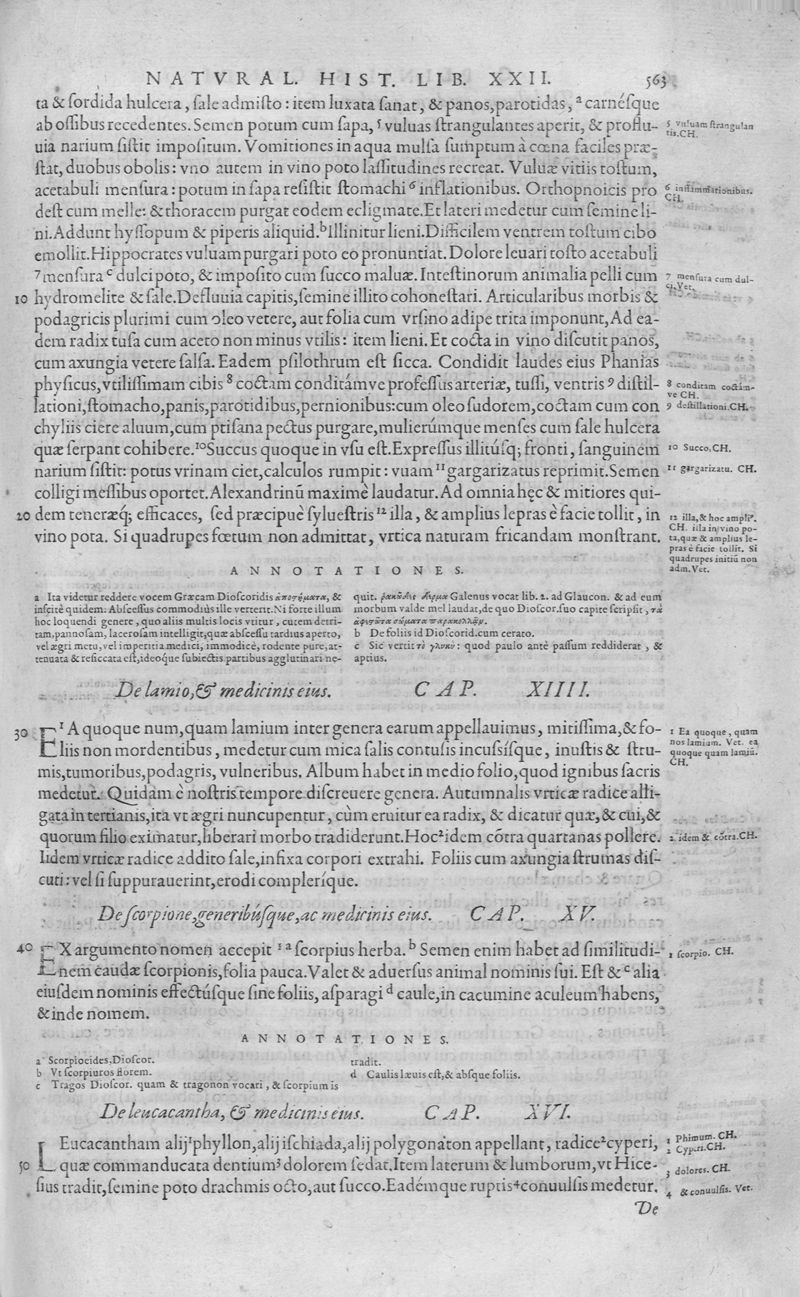 NATVRAL. HIST. LIB. XXII. 563
ta & ſordida hulcera, ſale admiſto: item luxata ſanat, & panos, parotidas, ᵃ carnéſque
ab oſſibus recedentes. Semen potum cum ſapa, ⁵ vuluas ſtrangulantes aperit, & proflu-
uia narium ſiſtit impoſitum. Vomitiones in aqua mulſa ſumptum à cœna faciles præ-
ſtat, duobus obolis: vno autem in vino poto laſſitudines recreat. Vuluæ vitiis toſtum,
acetabuli menſura: potum in ſapa reſiſtit ſtomachi ⁶ inflationibus. Orthopnoicis pro
deſt cum melle: & thoracem purgat eodem ecligmate. Et lateri medetur cum ſemine li-
ni. Addunt hyſſopum & piperis aliquid. ᵇ Illinitur lieni. Difficilem ventrem toſtum cibo
emollit. Hippocrates vuluam purgari poto eo pronuntiat. Dolore leuari toſto acetabuli
⁷ menſura ᶜ dulci poto, & impoſito cum ſucco maluæ. Inteſtinorum animalia pelli cum
10 hydromelite & ſale. Defluuia capitis, ſemine illito cohoneſtari. Articularibus morbis &
podagricis plurimi cum oleo vetere, aut folia cum vrſino adipe trita imponunt, Ad ea-
dem radix tuſa cum aceto non minus vtilis: item lieni. Et cocta in vino diſcutit panos,
cum axungia vetere ſalſa. Eadem pſilothrum eſt ſicca. Condidit laudes eius Phanias
phyſicus, vtiliſſimam cibis ⁸ coctam conditámve profeſſus arteriæ, tuſſi, ventris ⁹ diſtil-
lationi, ſtomacho, panis, parotidibus, pernionibus: cum oleo ſudorem, coctam cum con
chyliis ciere aluum, cum ptiſana pectus purgare, mulierúmque menſes cum ſale hulcera
quæ ſerpant cohibere. ¹⁰ Succus quoque in vſu eſt. Expreſſus illitúſq; fronti, ſanguinem
narium ſiſtit: potus vrinam ciet, calculos rumpit: vuam ¹¹ gargarizatus reprimit. Semen
colligi meſſibus oportet. Alexandrinũ maximè laudatur. Ad omnia hęc & mitiores qui-
20 dem teneræq; efficaces, ſed præcipuè ſylueſtris ¹² illa, & amplius lepras è facie tollit, in
vino pota. Si quadrupes fœtum non admittat, vrtica naturam fricandam monſtrant.
5 vuluam ſtrangulan
tis. CH.
6 inflammationibus.
CH.
7 menſura cum dul-
ci. Vet.
8 conditam coctám-
ve CH.
9 deſtillationi. CH.
10 Succo, CH.
11 gargarizatu. CH.
12 illa, & hoc ampliꝰ.
CH. illa in vino po-
ta, quæ & amplius le-
pras è facie tollit. Si
quadrupes initiũ non
adm. Vet.
ANNOTATIONES.
a Ita videtur reddere vocem Græcam Dioſcoridis ἀποστήματα, &
inſcitè quidem. Abſceſſus commodiùs ille verterit. Ni forte illum
hoc loquendi genere, quo aliis multis locis vtitur, cutem detri-
tam, pannoſam, laceroſam intelligit, quæ abſceſſu tardius aperto,
vel ægri metu, vel imperitia medici, immodicè, rodente pure, at-
tenuata & reſiccata eſt, ideóque ſubiectis partibus agglutinari ne-
quit. ῥακῶδες δέρμα Galenus vocat lib. 2. ad Glaucon. & ad eum
morbum valde mel laudat, de quo Dioſcor. ſuo capite ſcripſit, τὰ
b De foliis id Dioſcorid. cum cerato.
c Sic vertit τὸ γλυκύ: quod paulo antè paſſum reddiderat, &
aptius.
De lamio, & medicinis eius. CAP. XIIII.
30 E¹A quoque num, quam lamium inter genera earum appellauimus, mitiſſima, & fo-
liis non mordentibus, medetur cum mica ſalis contuſis incuſsíſque, inuſtis & ſtru-
mis, tumoribus, podagris, vulneribus. Album habet in medio folio, quod ignibus ſacris
medetut. Quidam è noſtris tempore diſcreuere genera. Autumnalis vrticæ radice alli-
gata in tertianis, ita vt ægri nuncupentur, cùm eruitur ea radix, & dicatur quæ, & cui, &
quorum filio eximatur, liberari morbo tradiderunt. Hoc ² idem cõtra quartanas pollere.
Iidem vrticæ radice addito ſale, infixa corpori extrahi. Foliis cum axungia ſtrumas diſ-
cuti: vel ſi ſuppurauerint, erodi compleríque.
1 Ea quoque, quam
nos lamium. Vet. ea
quoque quam lamiũ.
CH.
2 idem & cõtra. CH.
De ſcorpione, generibúſque, ac medicinis eius. CAP. XV.
40 EX argumento nomen accepit ¹ ᵃ ſcorpius herba. ᵇ Semen enim habet ad ſimilitudi-
nem caudæ ſcorpionis, folia pauca. Valet & aduerſus animal nominis ſui. Eſt & ᶜ alia
eiuſdem nominis effectúſque ſine foliis, aſparagi ᵈ caule, in cacumine aculeum habens,
& inde nomem.
1 ſcorpio. CH.
ANNOTATIONES.
a Scorpioeides, Dioſcor.
b Vt ſcorpiuros florem.
c Tragos Dioſcor. quam & tragonon vocari, & ſcorpium is
tradit.
d Caulis læuis eſt, & abſque foliis.
De leucacantha, & medicinis eius. CAP. XVI.
LEucacantham alij ¹ phyllon, alij iſchiada, alij polygonáton appellant, radice ² cyperi,
50 quæ commanducata dentium ³ dolorem ſedat. Item laterum & lumborum, vt Hice-
ſius tradit, ſemine poto drachmis octo, aut ſucco. Eadémque ruptis ⁴ conuulſis medetur.
1 Phimum. CH.
2 Cypiri. CH.
3 dolores. CH.
4 & conuulſis. Vet.
De